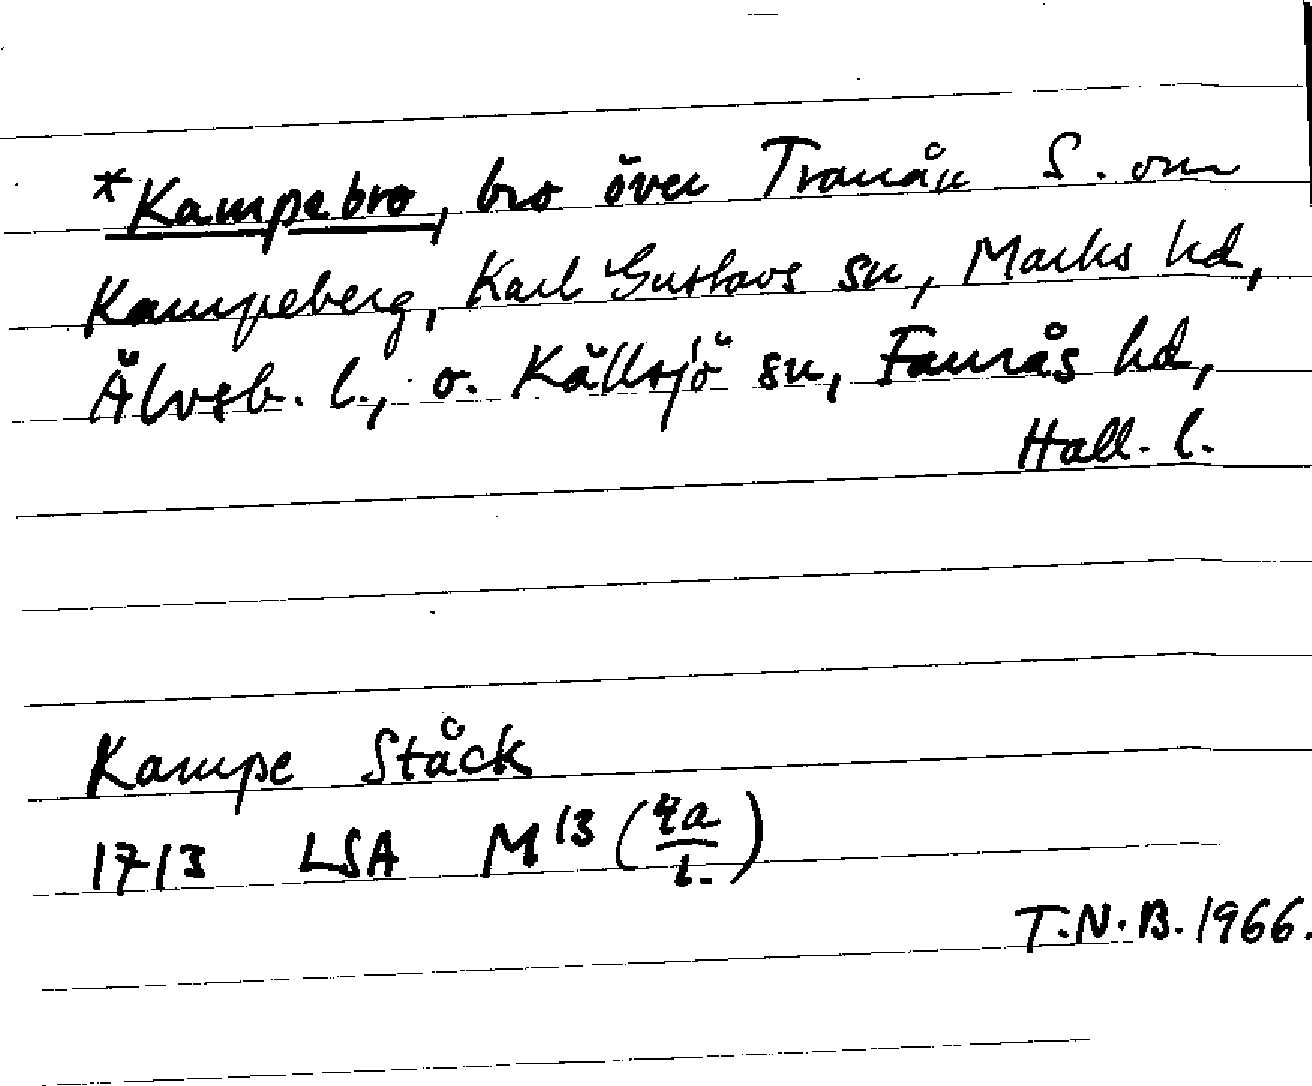 *Kampebro, bro över Tranån S. om
Kampeberg, Karl Gustavs sn, Marks hd,
Älvsb. l., o. Källsjö sn, Faurås hd,
Hall. l.
Kampe Ståck
1713 LSA M 13 (4a/1.)
T.N.B. 1966.